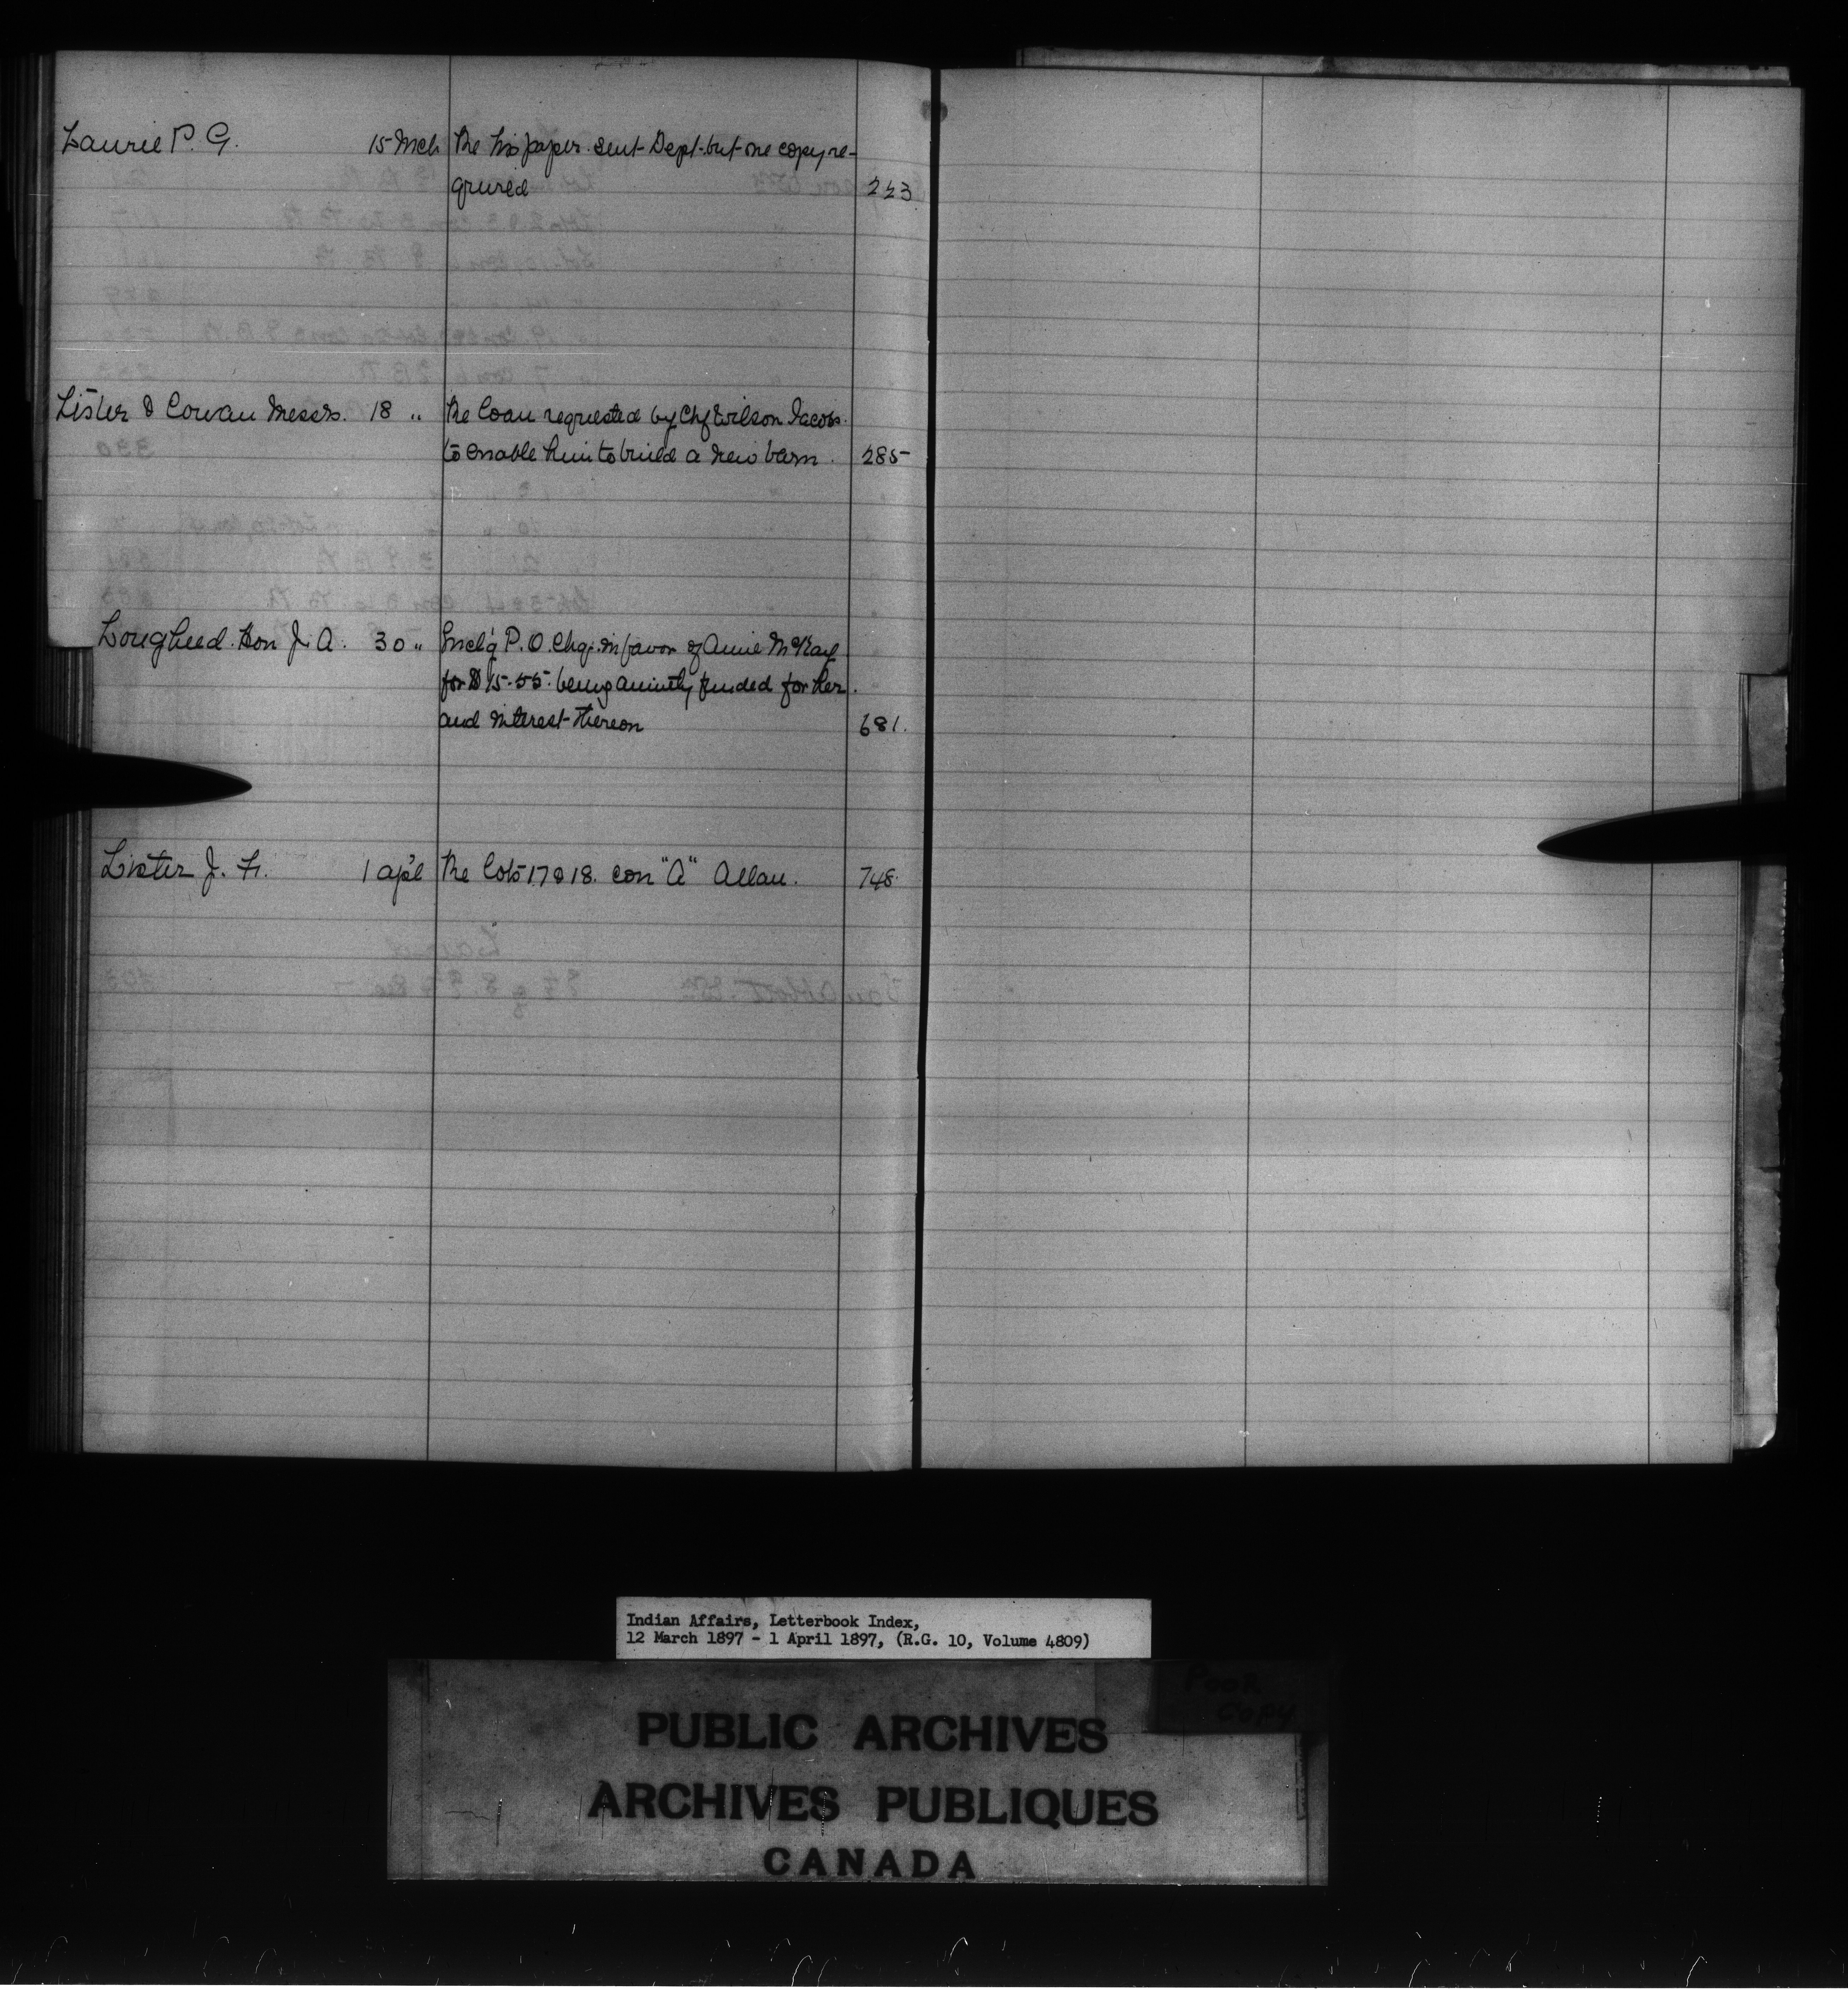 Laurie P. G. 15 Mch Re his paper sent Dept. but one copy re-
quired 223
Lister & Cowan Messrs. 18 " Re loan requested by Chf Wilson Jacobs
to enable him to build a new barn. 285
Lougheed Hon J. A. 30 " Encl'g P. O. Chq. in favor of Annie McKay
for $15.55 being annuity funded for her
and interest thereon 681.
Lister J. F. 1 ap'l Re lots 17 & 18. con "A" Allan. 748.
Indian Affairs, Letterbook Index,
12 March 1897 - 1 April 1897, (R.G. 10, Volume 4809)
POOR
COPY
PUBLIC ARCHIVES
ARCHIVES PUBLIQUES
CANADA